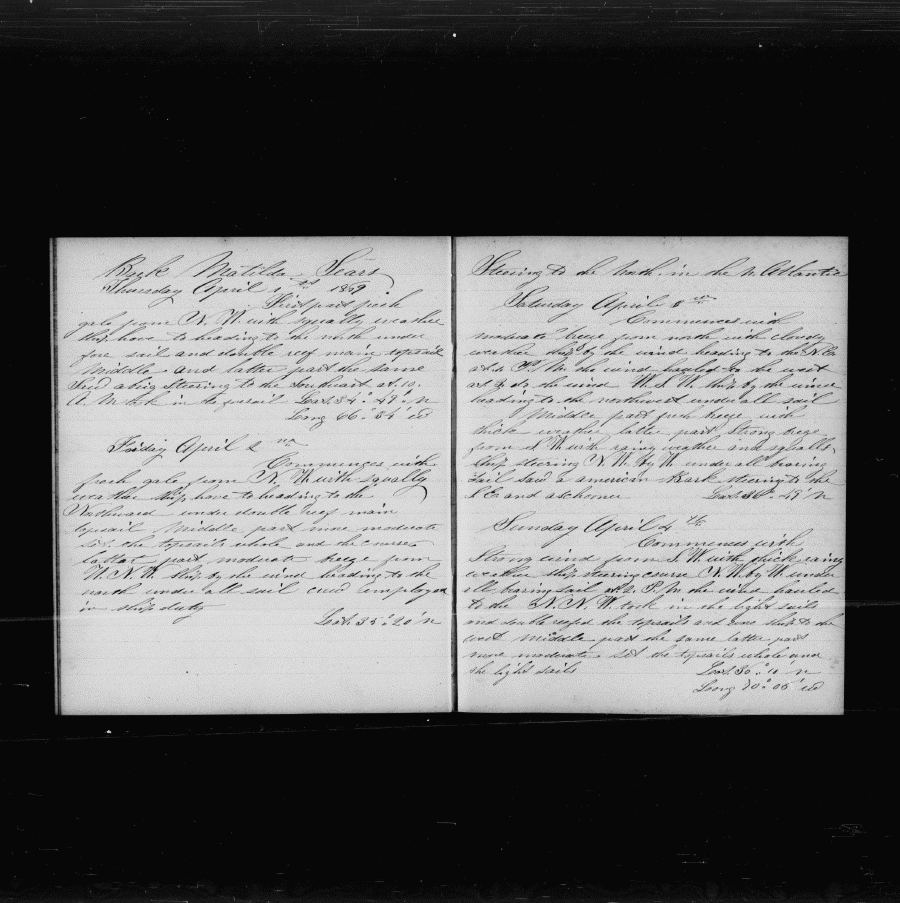 Bark Matilda Sears
Thursday April 1st 1869
First part fresh
gale from N. W. with squally weather
ship hove to heading to the north under
fore sail and double reef main topsail
Middle and latter part the same
Saw a brig steering to the southward at 10.
A. M took in the foresail Lat. 34° 49' N
Long 66° 54' W
Friday April 2nd
Commences with
fresh gale from N. W with squally
weather ship hove to heading to the
Northward under double reef main
topsail Middle part more moderate
set the topsails whole and the courses
latter part moderate breeze from
W. N. W. ship by the wind heading to the
north under all sail crew employed
in ship duty
Lat. 35° 20' N
Steering to the North in the N Atlantic
Saturday April 3
Commences with
moderate breeze from north with cloudy
weather ship by the wind heading to the N. E.
at P. M the wind hauled to the west
at the wind W. S. W ship by the wind
heading to the northwest under all sail
Middle part fresh breeze with
thick weather latter part strong breeze
from S. W with rainy weather and squalls,
ship steering N. W. by W. under all bearing
sail Saw a american Bark steering to the
S. E and a schooner Lat. 49' N
Sunday April 4th
Commences with
Strong wind from S. W. with thick rainy
weather ship steering course N. W. by W. under
all bearing sail at 2. P. M the wind hauled
to the N. N. W. took in the light sails
and double reefed the topsails and wore ship to the
west middle part the same latter part
more moderate set the topsails whole and
the light sails Lat. N
Long 70° 05' W